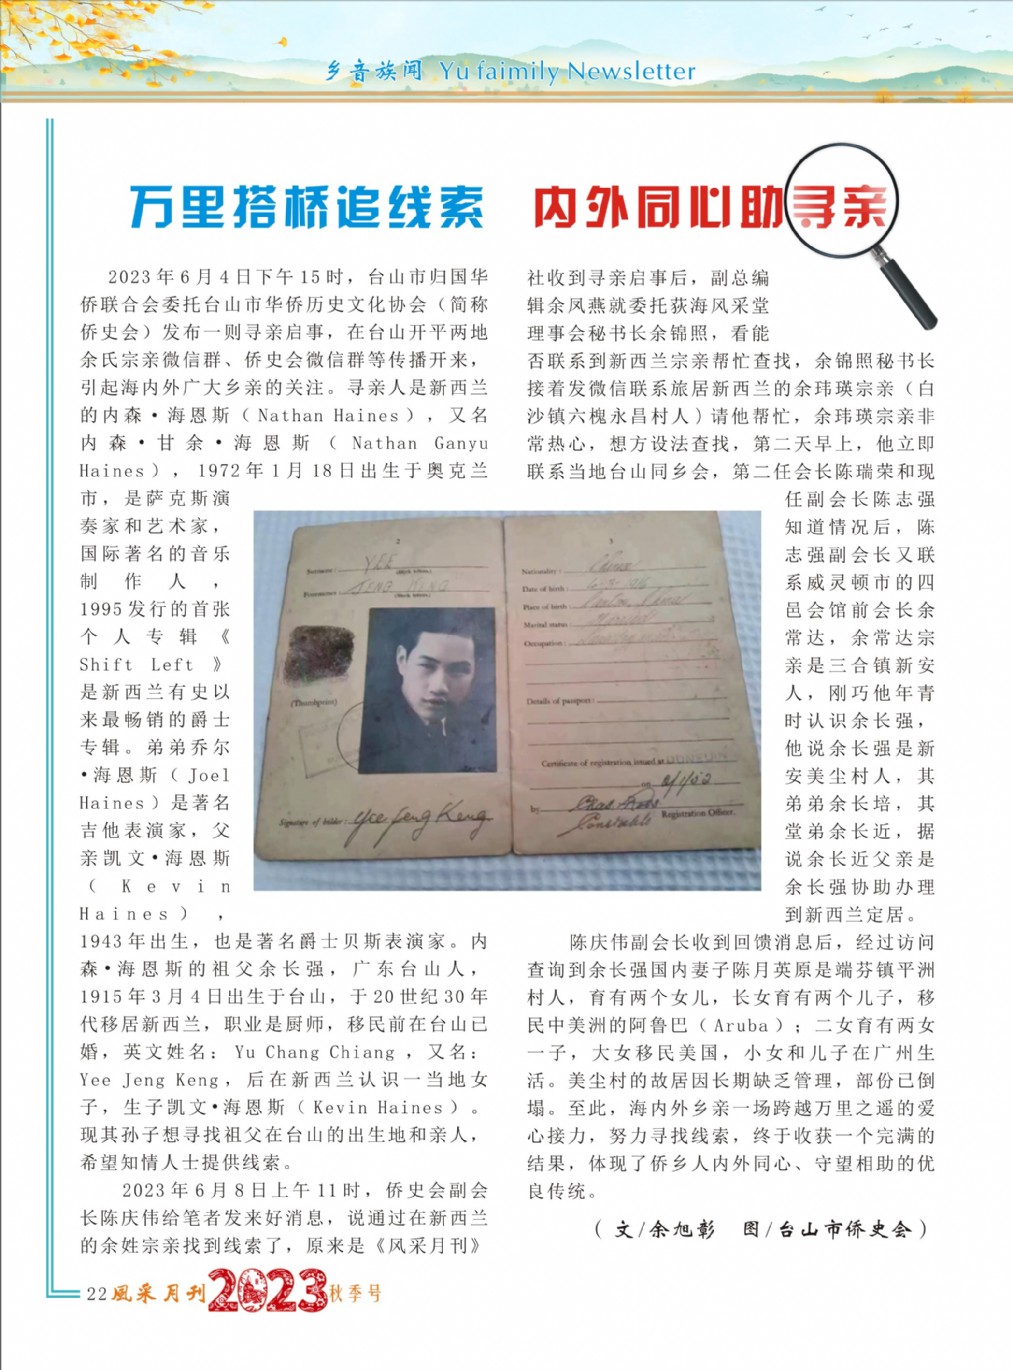 乡音族闻 Yu faimily Newsletter
万里搭桥追线索 内外同心助寻亲
2023年6月4日下午15时，台山市归国华
侨联合会委托台山市华侨历史文化协会（简称
侨史会）发布一则寻亲启事，在台山开平两地
余氏宗亲微信群、侨史会微信群等传播开来，
引起海内外广大乡亲的关注。寻亲人是新西兰
的内森•海恩斯（Nathan Haines），又名
内森•甘余•海恩斯（Nathan Ganyu
Haines），1972年1月18日出生于奥克兰
市，是萨克斯演
奏家和艺术家，
国际著名的音乐
制作人，
1995发行的首张
个人专辑《
Shift Left》
是新西兰有史以
来最畅销的爵士
专辑。弟弟乔尔
•海恩斯（Joel
Haines）是著名
吉他表演家，父
亲凯文•海恩斯
（Kevin
Haines），
1943年出生，也是著名爵士贝斯表演家。内
森•海恩斯的祖父余长强，广东台山人，
1915年3月4日出生于台山，于20世纪30年
代移居新西兰，职业是厨师，移民前在台山已
婚，英文姓名：Yu Chang Chiang，又名：
Yee Jeng Keng，后在新西兰认识一当地女
子，生子凯文•海恩斯（Kevin Haines）。
现其孙子想寻找祖父在台山的出生地和亲人，
希望知情人士提供线索。
2023年6月8日上午11时，侨史会副会
长陈庆伟给笔者发来好消息，说通过在新西兰
的余姓宗亲找到线索了，原来是《风采月刊》
社收到寻亲启事后，副总编
辑余凤燕就委托荻海风采堂
理事会秘书长余锦照，看能
否联系到新西兰宗亲帮忙查找，余锦照秘书长
接着发微信联系旅居新西兰的余玮瑛宗亲（白
沙镇六槐永昌村人）请他帮忙，余玮瑛宗亲非
常热心，想方设法查找，第二天早上，他立即
联系当地台山同乡会，第二任会长陈瑞荣和现
任副会长陈志强
知道情况后，陈
志强副会长又联
系威灵顿市的四
邑会馆前会长余
常达，余常达宗
亲是三合镇新安
人，刚巧他年青
时认识余长强，
他说余长强是新
安美尘村人，其
弟弟余长培，其
堂弟余长近，据
说余长近父亲是
余长强协助办理
到新西兰定居。
陈庆伟副会长收到回馈消息后，经过访问
查询到余长强国内妻子陈月英原是端芬镇平洲
村人，育有两个女儿，长女育有两个儿子，移
民中美洲的阿鲁巴（Aruba）；二女育有两女
一子，大女移民美国，小女和儿子在广州生
活。美尘村的故居因长期缺乏管理，部份已倒
塌。至此，海内外乡亲一场跨越万里之遥的爱
心接力，努力寻找线索，终于收获一个完满的
结果，体现了侨乡人内外同心、守望相助的优
良传统。
（文/余旭彰 图/台山市侨史会）
2
Surname: YEE
(Block letters)
(Block letters)
(Thumbprint)
Signature of holder: Yee Jeng Keng
3
Nationality: China
Date of birth:
Place of birth: Canton, China
Marital status: Married
Occupation:
Details of passport:
Certificate of registration issued at DUNEDIN
on
by
Constable Registration Officer.
22 風采月刊 2023 秋季号